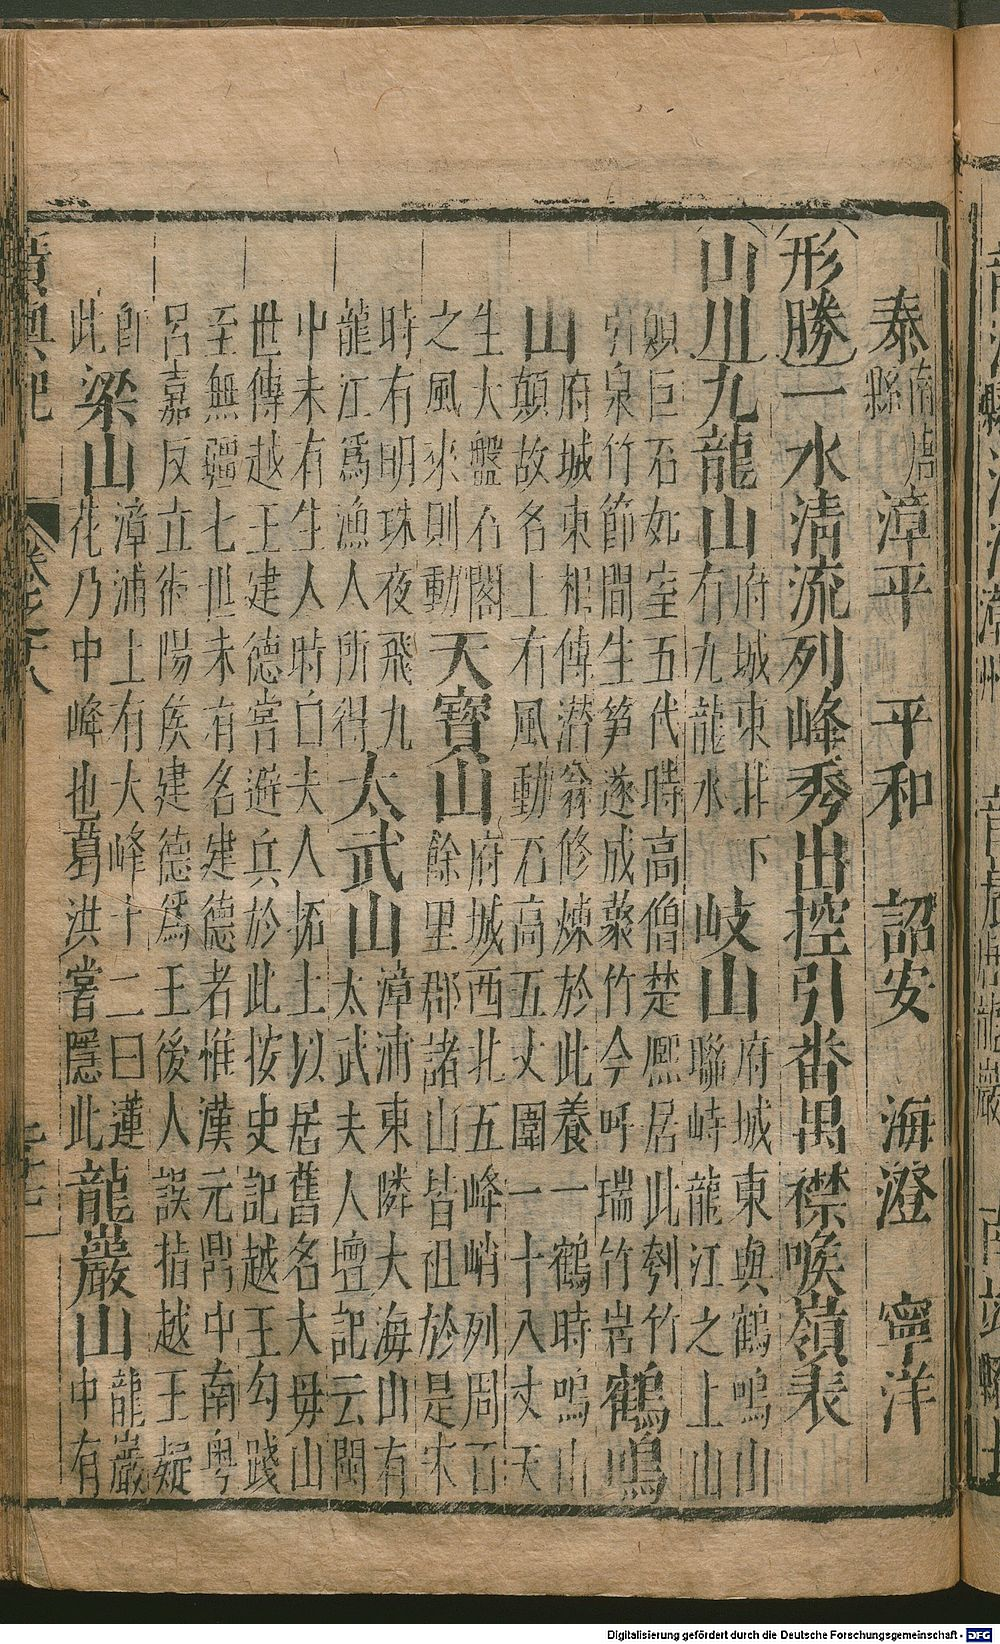 泰
南唐
縣
漳平 平和 詔安 海澄 寧洋
形勝 一水清流列峰秀出控引番禺襟喉嶺表
山川 九龍山
府城東北下
有九龍水
岐山
府城東與鶴鳴山
聯峙龍江之上山
巔巨石如室五代時高僧楚熈居此刳竹
引泉竹節間生笋遂成藂竹今呼瑞竹岩
鶴鳴
山
府城東相傳潜翁修煉於此養一鶴時鳴山
顛故名上有風動石高五丈圍一十八丈天
生大盤石閣
之風來則動
天寶山
府城西北五峰峭列周百
餘里郡諸山皆祖於是宋
時有明珠夜飛九
龍江爲漁人所得
太武山
漳浦東隣大海山有
太武夫人壇記云閩
中未有生人時白夫人拓土以居舊名大毋山
世傳越王建德嘗避兵於此按史記越王勾踐
至無疆七世未有名建德者惟漢元鼎中南粵
呂嘉反立術陽侯建德爲王後人誤指越王疑
卽
此
梁山
漳浦上有大峰十二曰蓮
花乃中峰也葛洪嘗隱此
龍巖山
龍巖
中有
廣輿記 卷之十八
Digitalisierung gefördert durch die Deutsche Forschungsgemeinschaft - DFG